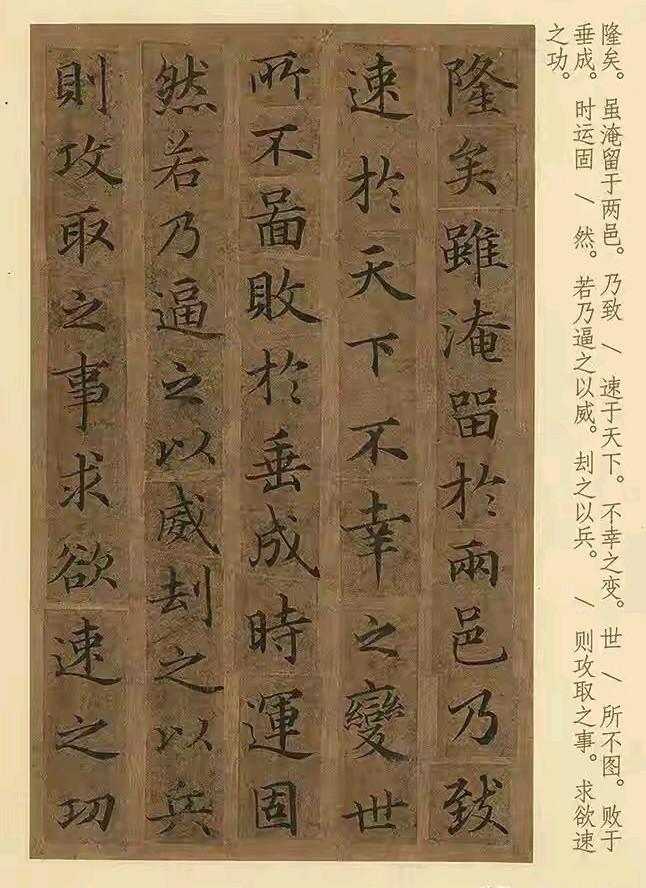 隆矣。虽淹留于两邑。乃致 \ 速于天下。不幸之变。世 \ 所不图。败于
垂成。时运固 \ 然。若乃逼之以威。刦之以兵。 \ 则攻取之事。求欲速
之功。
隆矣雖淹留於兩邑乃致
速於天下不幸之變世
所不啚敗於垂成時運固
然若乃逼之以威刦之以兵
則攻取之事求欲速之功